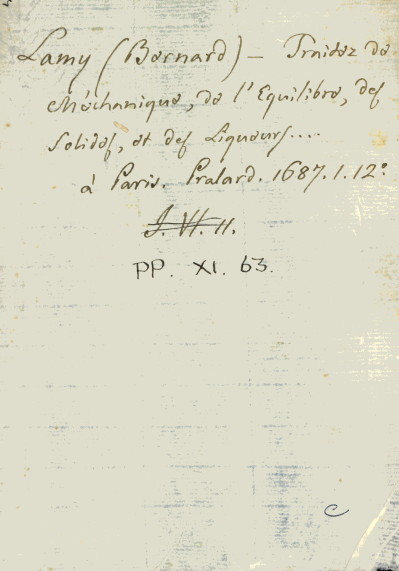 Lamy (Bernard) — Traitez de
Méchanique, de l'Equilibre, des
Solides, et des Liqueurs....
à Paris. Pralard. 1687. 1. 12°.
J. VI. 11.
PP. XI. 63.
C